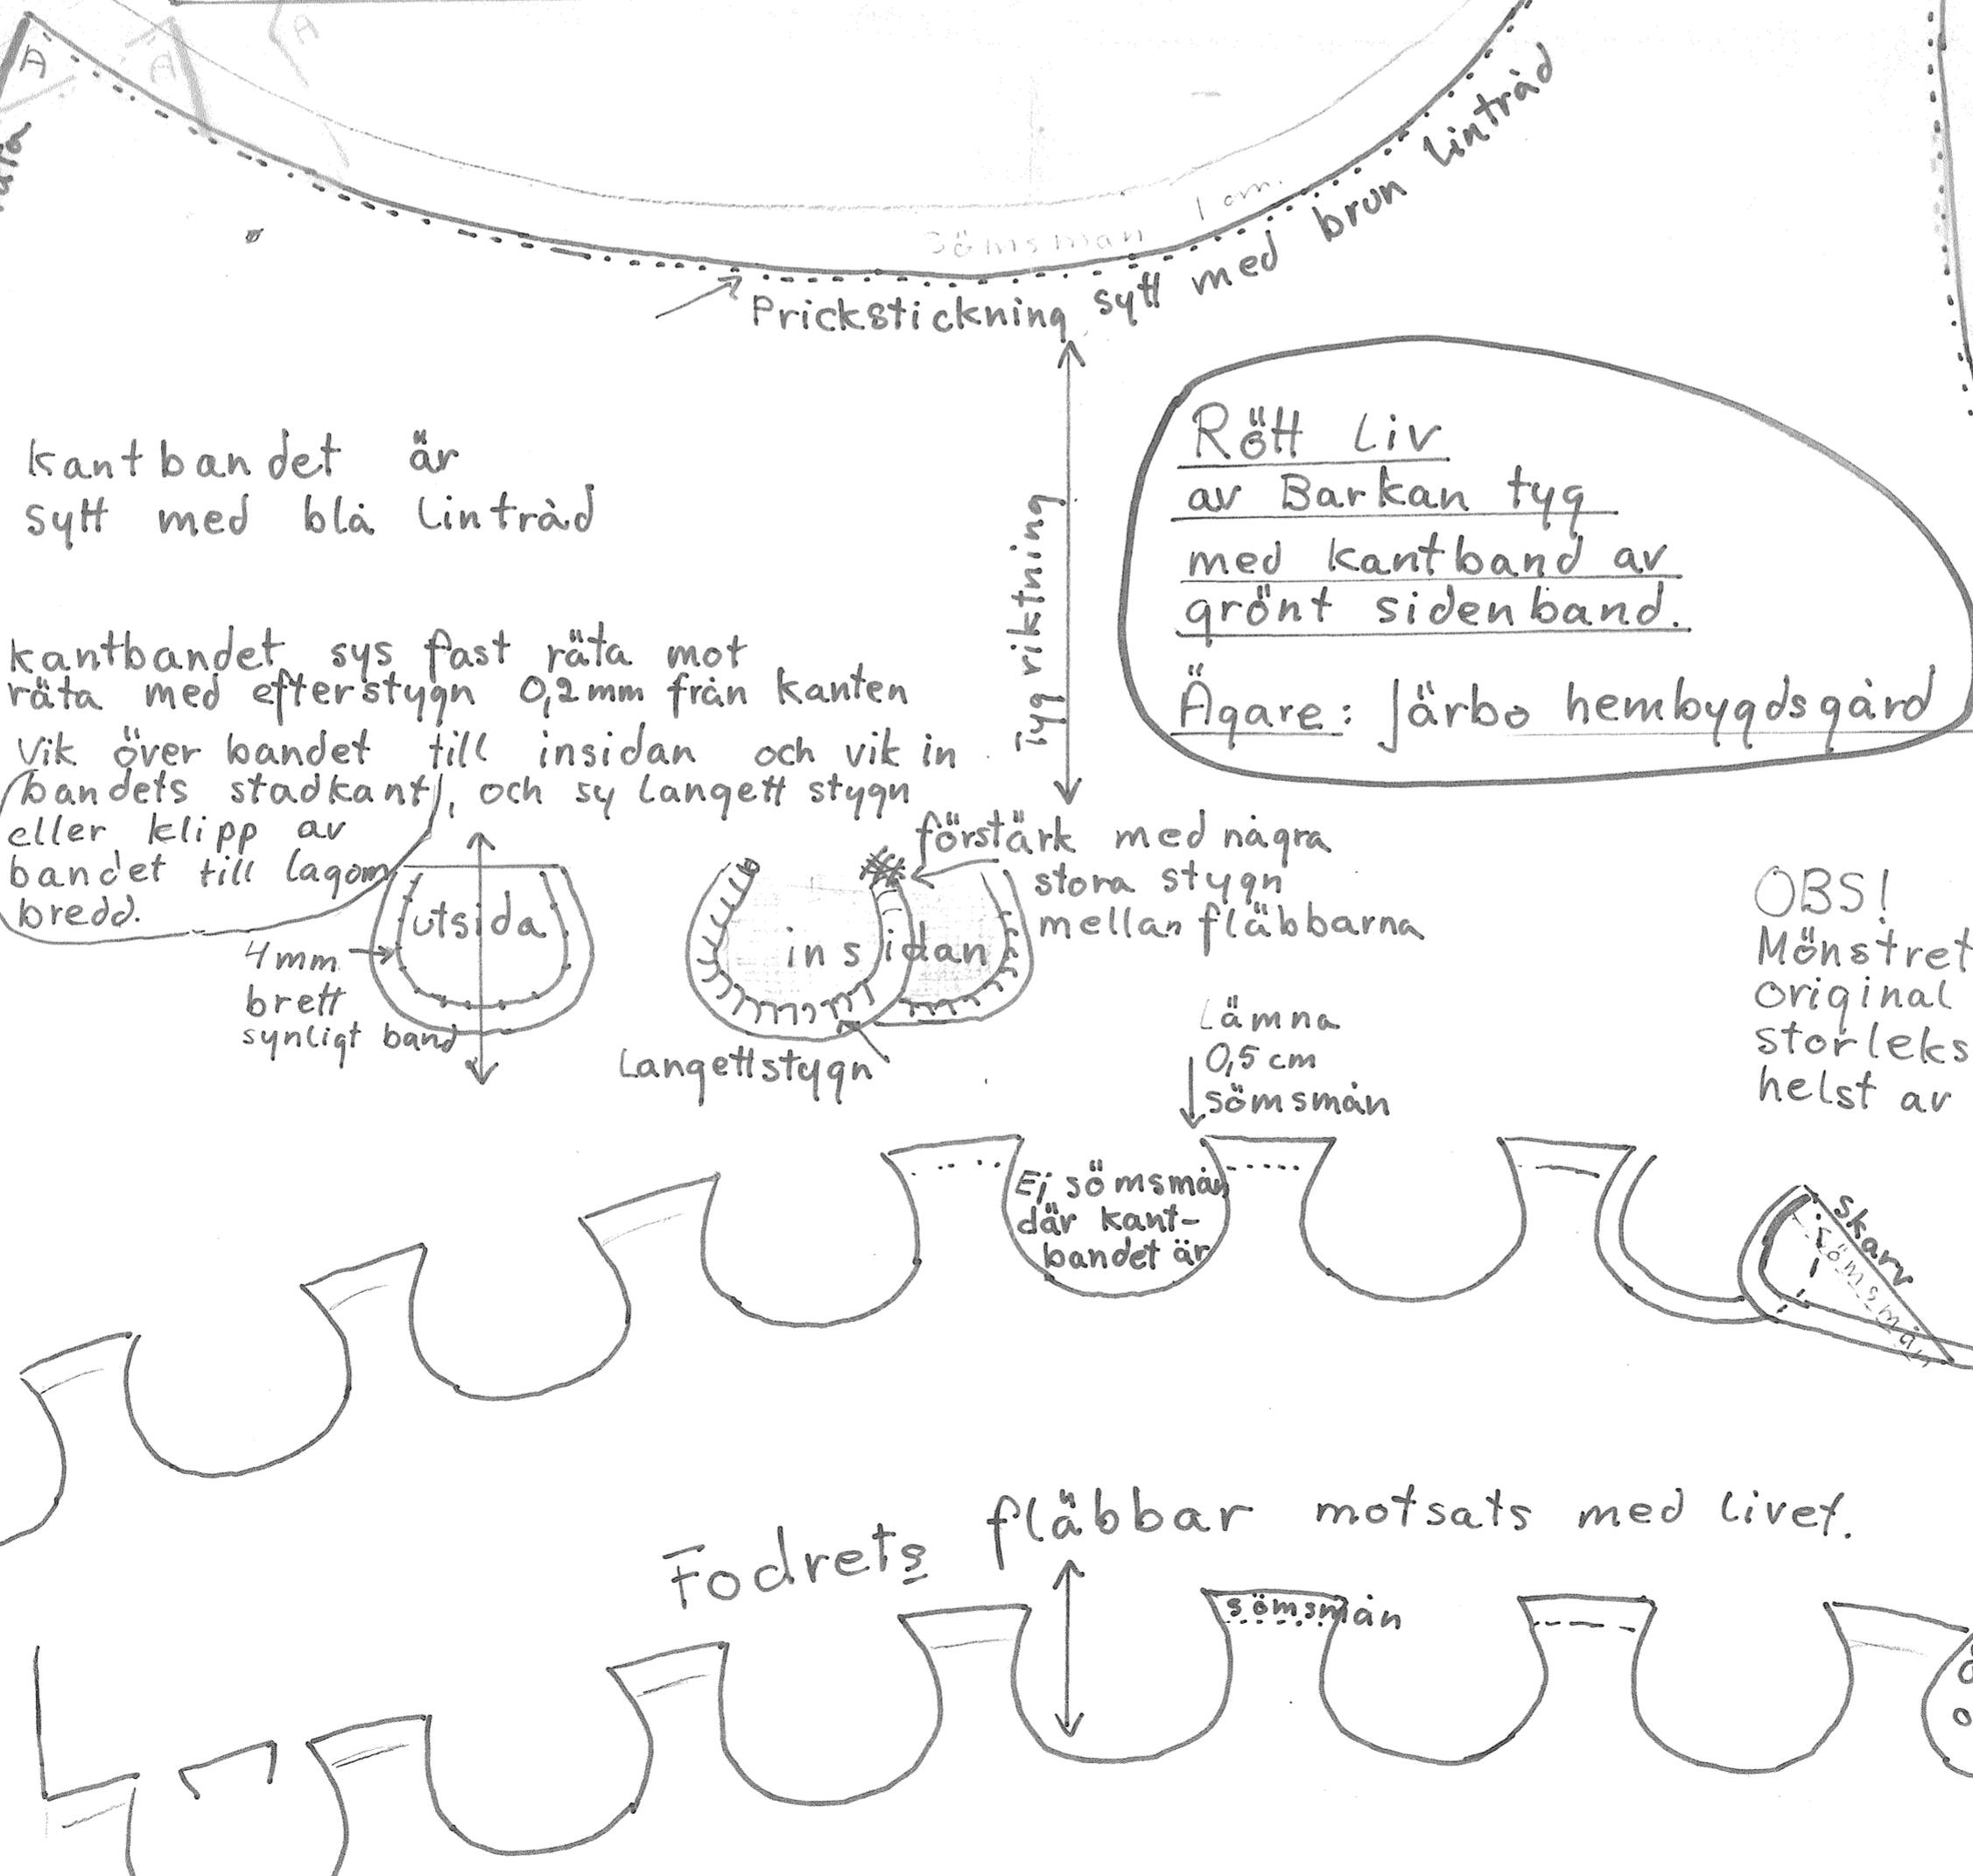 A
A
A
1 cm.
Sömsmån
Prickstickning sytt med brun lintråd
Kantbandet är
sytt med blå lintråd
Tyg riktning
Rött Liv
av Barkan tyg
med kantband av
grönt sidenband.
Ägare: Järbo hembygdsgård
kantbandet sys fast räta mot
räta med efterstygn 0,2mm från kanten
Vik över bandet till insidan och vik in
bandets stadkant, och sy langett stygn
eller klipp av
bandet till lagom
bredd.
utsida
4mm
brett
synligt band
insidan
Langettstygn
förstärk med några
stora stygn
mellan fläbbarna
OBS!
Mönstret
original
storleks
helst av
Lämna
0,5 cm
sömsmån
Ej sömsmån
där kant-
bandet är
Skarv
Sömsmån
Fodrets fläbbar motsats med livet.
sömsmån